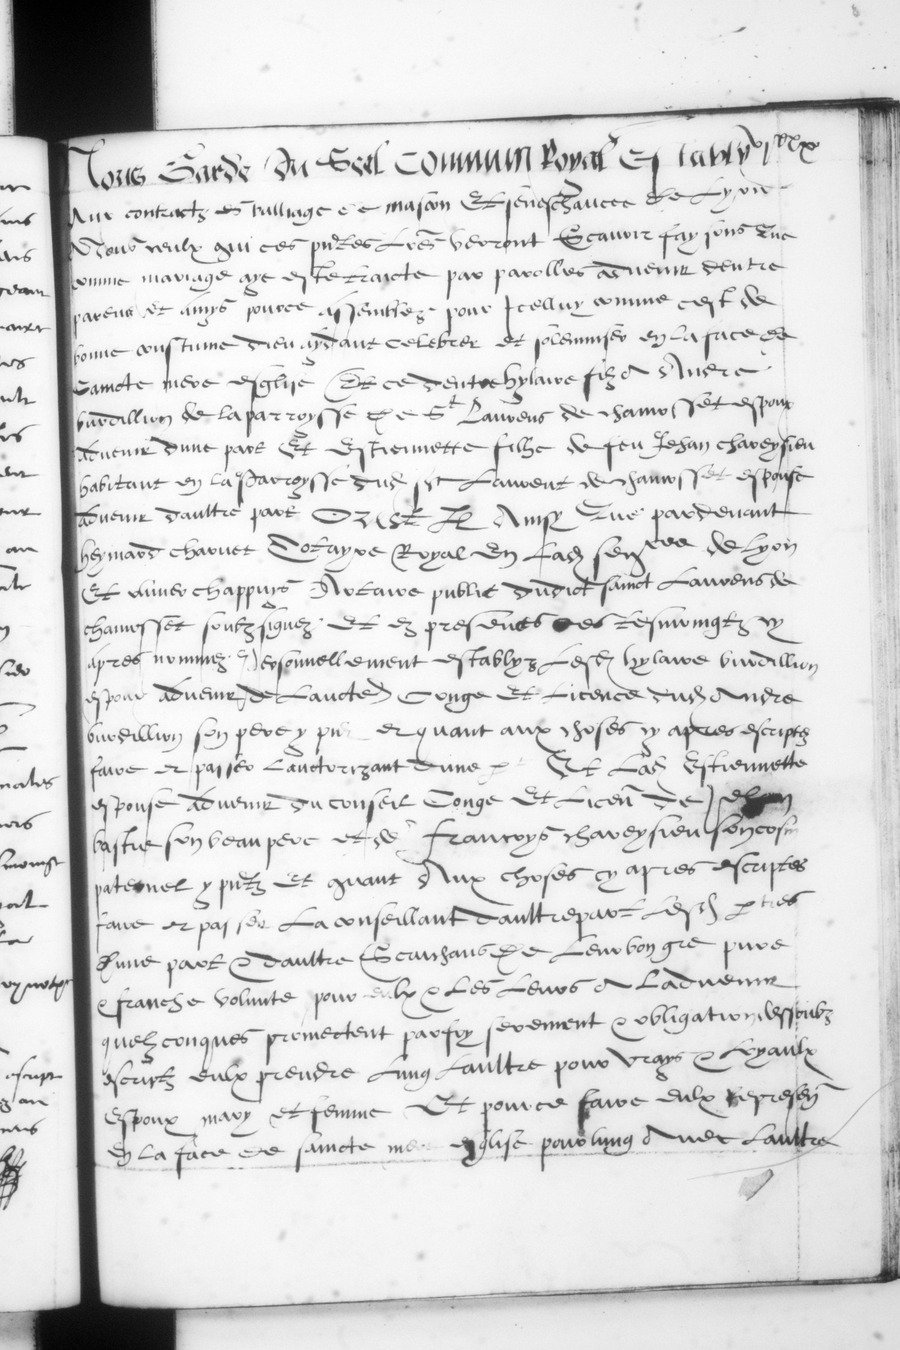 Nous Garde Du Seel Commun Royal Establly
Aux contractz es balliage de mascon Et seneschaucee de Lyon
A tous ceulx qui ces pntes Lres verront Scavoir faysons Que
comme mariage aye este traicte par parolles advenir dentre
parens et amys pource assemblez pour Icelluy comme cest de
bonne coustume dieu aydant celebrer et solemniser en la face de
Saincte mere esglise Et ce dentre hylaire filz a Andre
burdillion de la parroysse de St Laurens de chamosset espoux
advenir dune part Et Estiennette filhe de feu Jehan chareysieu
habitant en la parroysse dud sct Laurent de chamosset espouse
advenir daultre part Or Est Il Ainsy Que pardevant
heymard charvet Notayre Royal En Lad senee de Lyon
Et chappuys Notaire public dudict sainct Laurens de
chamosset soubzsignez Et ez presences des tesmoingtz cy
apres nommez personnellement establyz Lesd hylaire burdillion
espoux advenir de Laucte Conge Et Licence dud Andre
burdillion son pere y pnt et quant aux choses cy apres escriptes
faire et passer Lauctorizant dune pt Et Lad Estiennette
espouse advenir du conseil Conge Et Licen de Jehan
bastie son beau pere et de Francoys chareysieu son cosin
paternel y pntz Et quant Aux choses cy apres escriptes
faire et passer La conseillant daultre part Lesd ptres
dune part & daultre Scaichans De Leur bon gre pure
& franche volunte pour eulx & Les Leurs A Ladvenir
quelzconques promectent par foy serement & obligation dessoubz
escriptz eulx prendre Lung Laultre pour vrays & Loyaulx
Espoux mary et femme Et pource faire eulx Represen
En La face De saincte mere esglise pour lung Avec Laultre